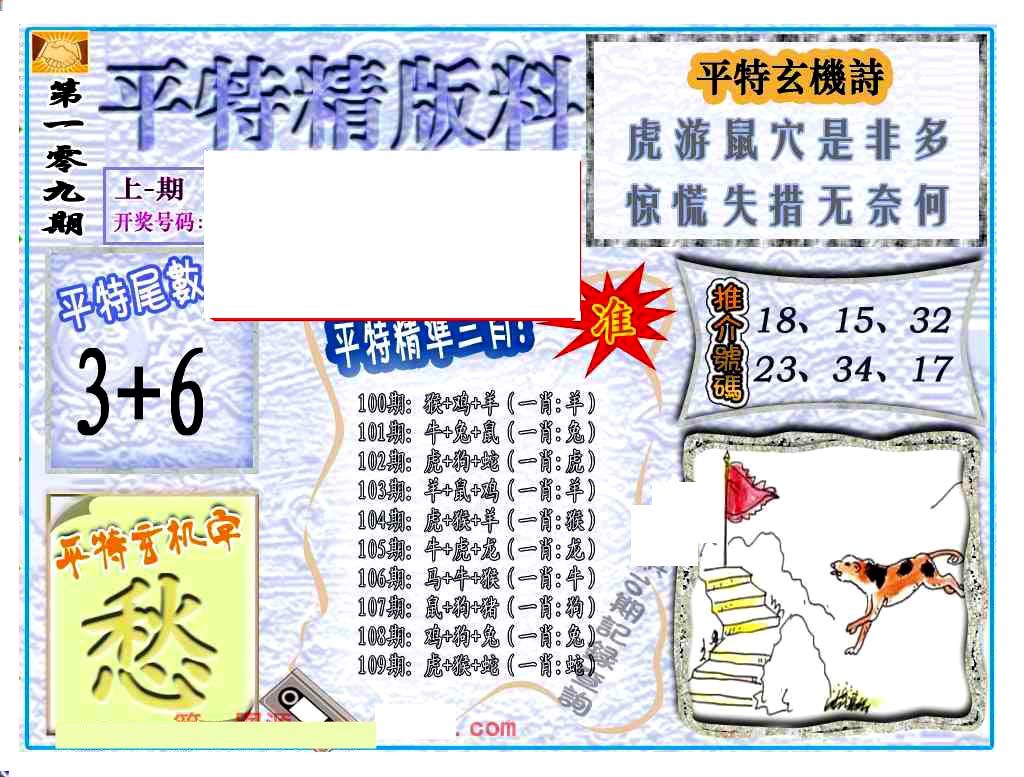 第一零九期
平特精版料
上-期
开奖号码:
平特玄機詩
虎游鼠穴是非多
惊慌失措无奈何
平特尾數
3+6
平特精準三肖!
准
推介號碼
18、15、32
23、34、17
100期: 猴+鸡+羊 (一肖:羊)
101期: 牛+兔+鼠 (一肖:兔)
102期: 虎+狗+蛇 (一肖:虎)
103期: 羊+鼠+鸡 (一肖:羊)
104期: 虎+猴+羊 (一肖:猴)
105期: 牛+虎+龙 (一肖:龙)
106期: 马+牛+猴 (一肖:牛)
107期: 鼠+狗+猪 (一肖:狗)
108期: 鸡+狗+兔 (一肖:兔)
109期: 虎+猴+蛇 (一肖:蛇)
期記錄查詢
平特玄机字
愁
.com